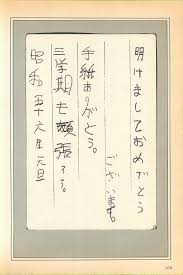 明けましておめでとう
ございます。
手紙ありがとう。
三学期も頑張ろう。
昭和五十六年元旦